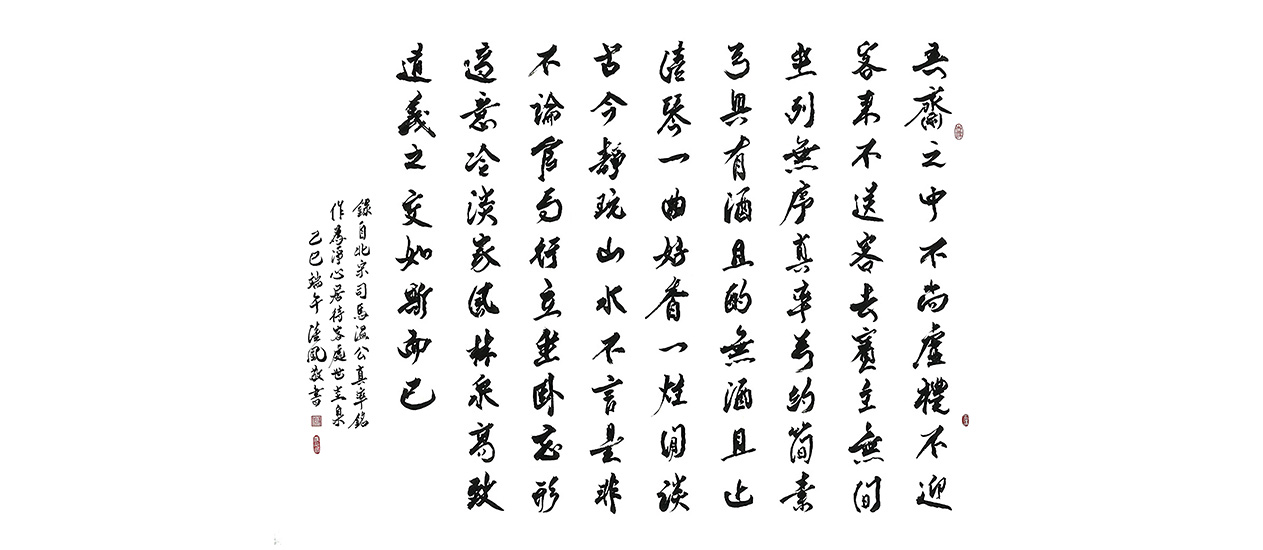 吾齋之中不尚虛禮不迎
客来不送客去賓主無間
坐列無序真率為約簡素
為具有酒且酌無酒且止
清琴一曲好香一炷閒談
古今靜玩山水不言是非
不論官局行立坐卧忘形
適意冷淡家風林泉高致
道義之交如斯而已
錄自北宋司馬温公真率銘
作為淨心居待客處世圭臬
己巳端午清風敬書